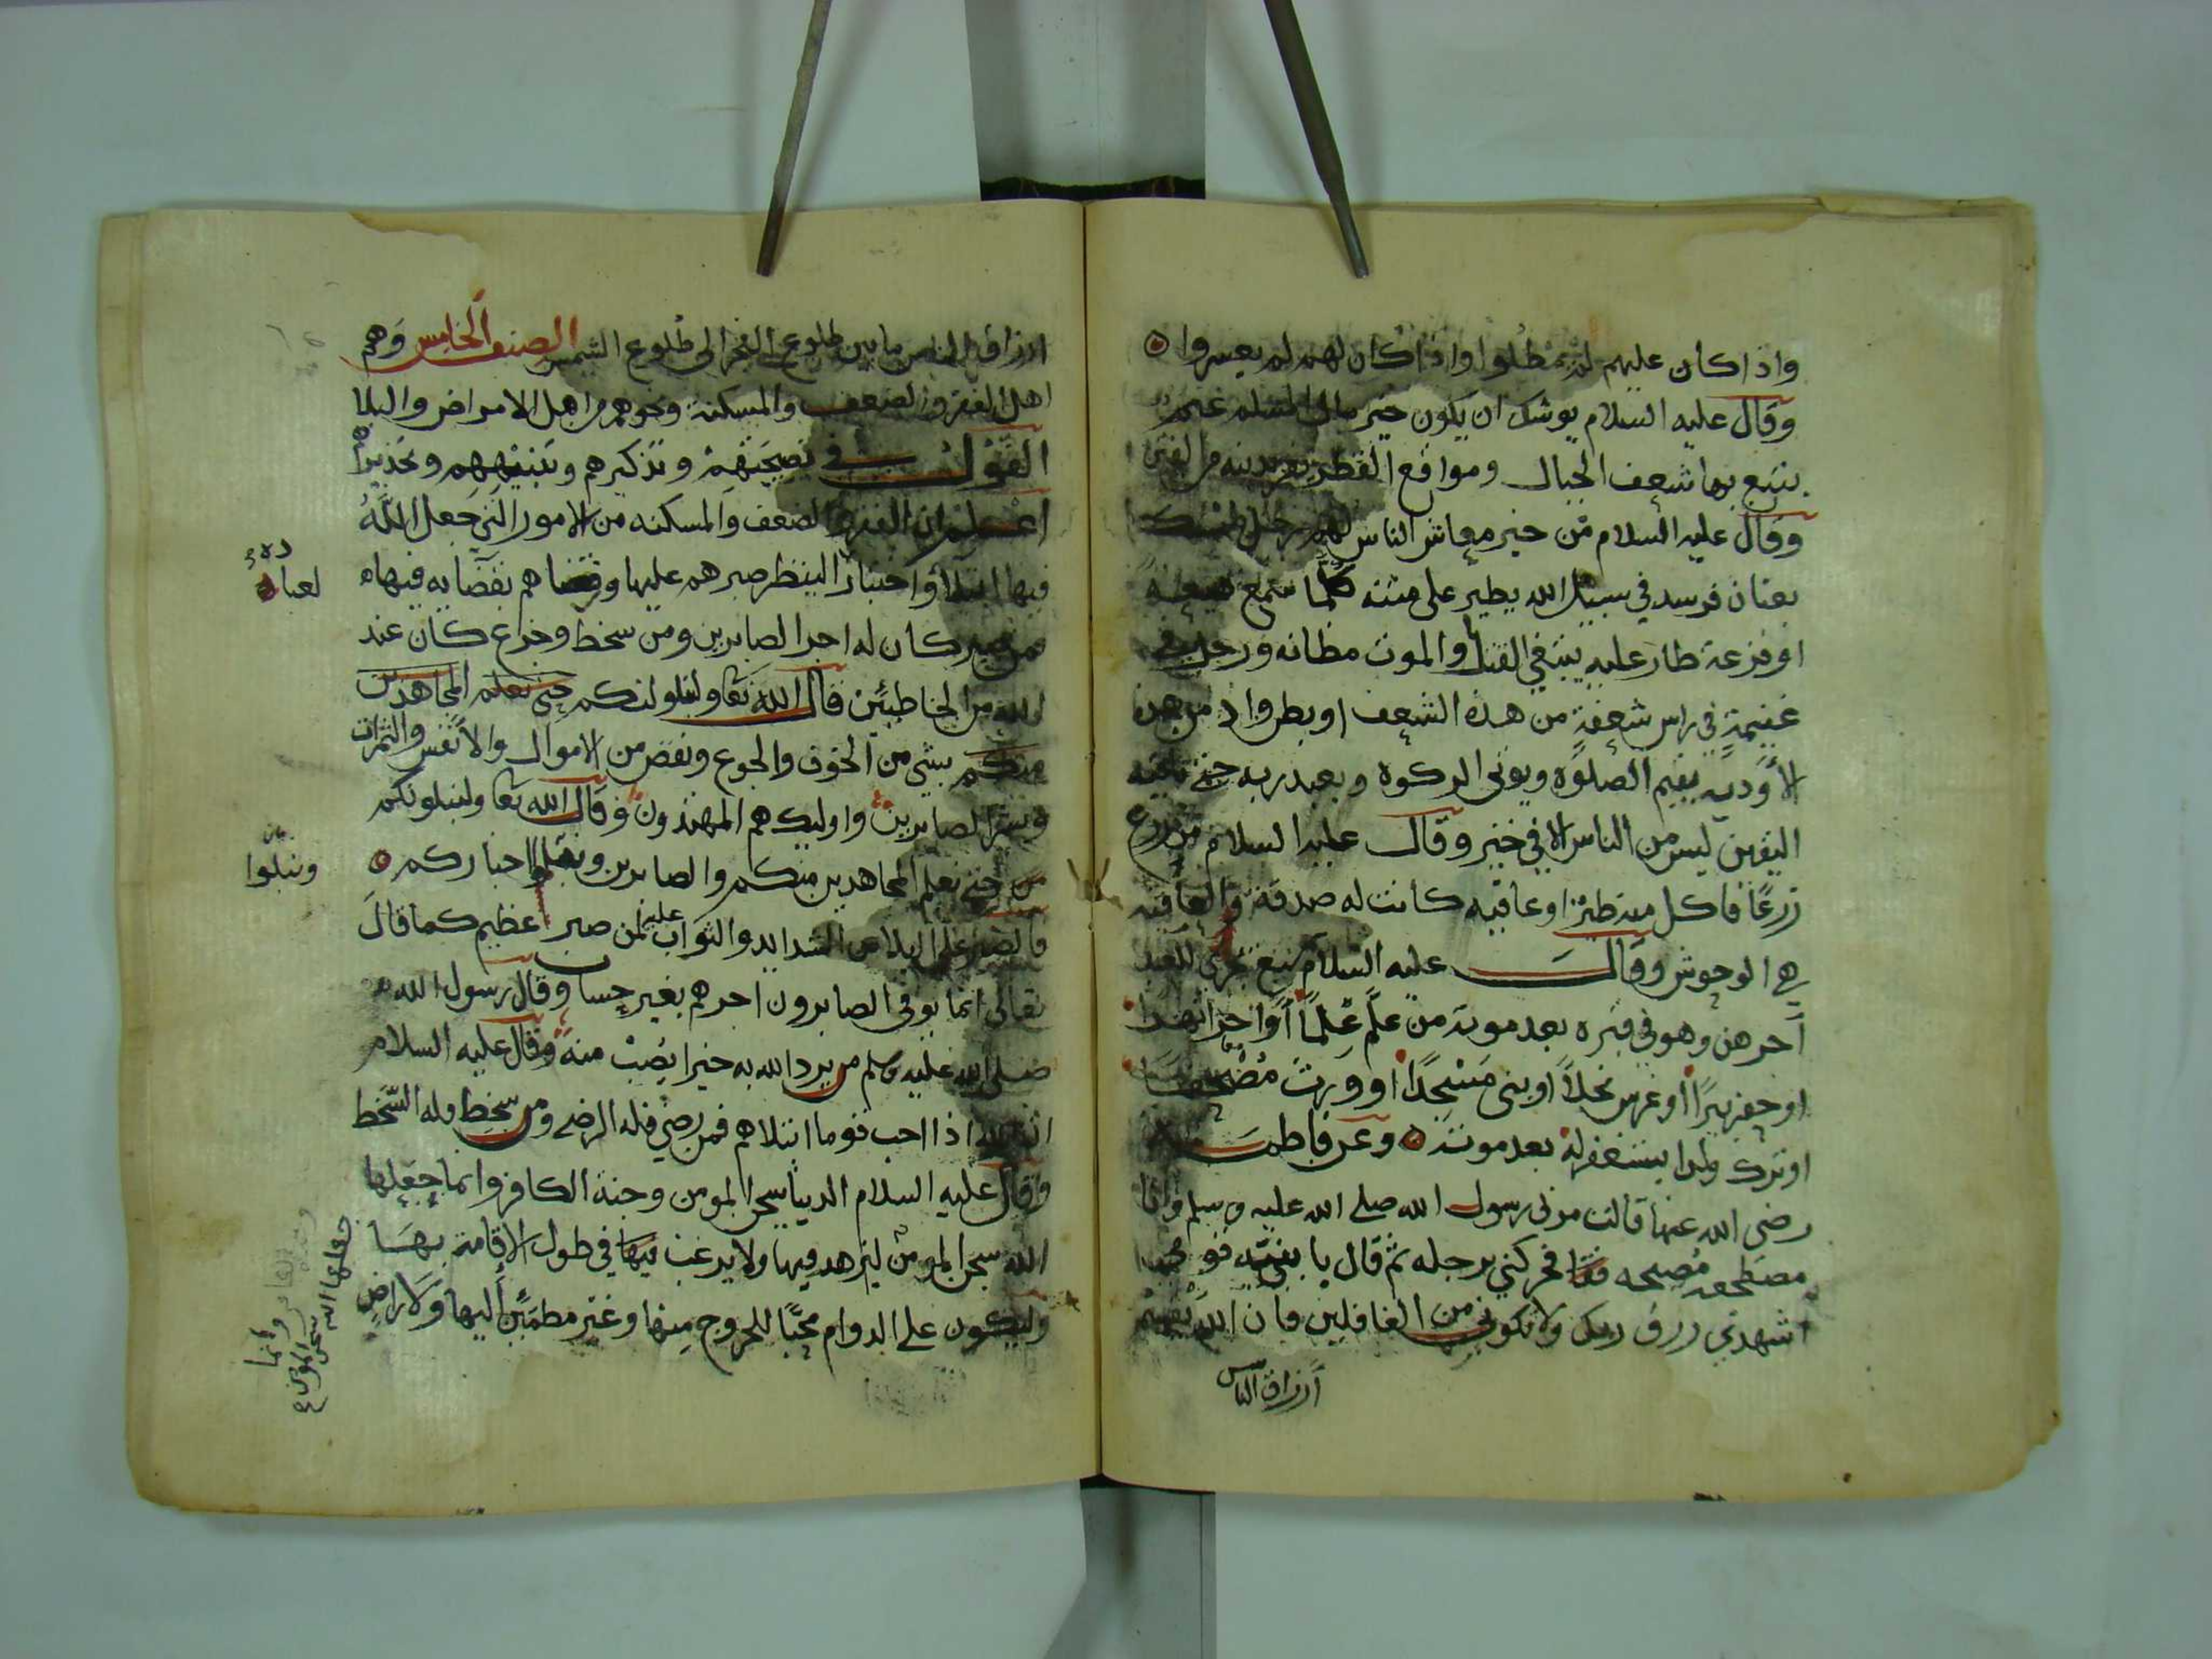 واذا كان عليهم لم يمطلوا واذا كان لهم لم يعسروا
وقال عليه السلام يوشك ان يكون خير مال المسلم غنم
يتبع بها شعف الجبال ومواقع القطر يفر بدينه من الفتن
وقال عليه السلام من خير معاش الناس لهم رجل ممسك
بعنان فرسه في سبيل الله يطير على متنه كلما سمع هيعة
او فزعة طار عليه يبتغي القتل والموت مظانه ورجل في
غنيمة في راس شعفة من هذه الشعف او بطن واد من هذه
الأودية يقيم الصلوة ويوتي الزكوة ويعبد ربه حتى ياتيه
اليقين ليس من الناس الا في خير وقال عليه السلام من زرع
زرعًا فاكل منه طير او عافيه كانت له صدقة والعافيه
هي الوحوش وقال عليه السلام سبع تجري للعبد
أجرهن وهو في قبره بعد موته من علّم عِلمًا أو اجرا نهرا
او حفر بيرًا او غرس نخلاً او بنى مَسْجِدًا او ورث مُصْحفا
او ترك ولدا يستغفر له بعد موته وعن فاطمه
رضي الله عنها قالت مر بي رسول الله صلى الله عليه وسلم وانا
مضطجعه مُصبحه فحركني برجله ثم قال يا بنيّه قومي
اشهدي رزق ربك ولا تكوني من الغافلين فان الله يقسم
أرزاق الناس
ارزاق الناس ما بين طلوع الفجر الى طلوع الشمس الصنف الخامس وَهم
اهل الفقر والضعف والمسكنة ونحوهم من اهل الامراض والبلا
القول في نصيحَتهمْ وتذكيرهم وتنبيههم وتحذيرهم
اعلم ان الفقر والضعف والمسكنه من الامور التي جَعل اللّهُ
فيها ابتلاً واختبارًا لينظر صبرهم عليها ورضاهم بقضايه فيها
فمن صبر كان له اجر الصابرين ومن سخط وجزع كان عند
الله من الخاطيئن قال الله تعا ولنبلونكم حتى نعلم المجاهدين
منكم بشي من الخوف والجوع ونقص من الاموال والأنفس والثمرات
وبشر الصابرين واوليك هم المهتدون وقال الله تعا ولنبلونكم
حتى نعلم المجاهدين منكم والصابرين ونعلم اخباركم
فالصبر على البلا من الشدايد والثواب عليه لمن صبر عظيم كما قالَ
تعالى انما يوفى الصابرون اجرهم بغير حساب وقال رسول الله
صلى الله عليه وسلم من يرد الله به خيرا يُصِبْ منه وقال عليه السلام
ان الله اذا احب قوما ابتلاهم فمن رضي فله الرضى ومن سخط فله السّخط
وقال عليه السلام الدنيا سجن المومن وجنة الكافر وانما جعلها
الله سجن المومن ليزهد فيها ولا يرغب فيها في طول الاقامة بهَا
وليكون على الدوام محبًّا للخروج منها وغير مطمَئِن أليها وَلاَ راضٍ
لعباده
ونبلوا
الكافر وانما
جعلها الله سجن المومن